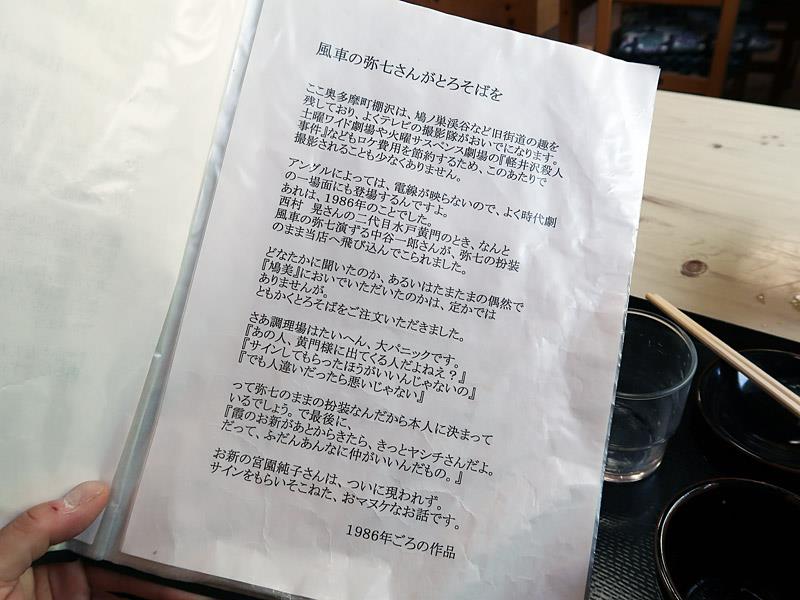 風車の弥七さんがとろそばを
ここ奥多摩町棚沢は、鳩ノ巣渓谷など旧街道の趣を
残しており、よくテレビの撮影隊がおいでになります。
土曜ワイド劇場や火曜サスペンス劇場の『軽井沢殺人
事件』などもロケ費用を節約するため、このあたりで
撮影されることも少なくありません。
アングルによっては、電線が映らないので、よく時代劇
の一場面にも登場するんですよ。
あれは、1986年のことでした。
西村 晃さんの二代目水戸黄門のとき、なんと
風車の弥七演ずる中谷一郎さんが、弥七の扮装
のまま当店へ飛び込んでこられました。
どなたかに聞いたのか、あるいはたまたまの偶然で
『鳩美』においでいただいたのかは、定かでは
ありませんが。
ともかくとろそばをご注文いただきました。
さあ調理場はたいへん、大パニックです。
『あの人、黄門様に出てくる人だよねえ?』
『サインしてもらったほうがいいんじゃないの』
『でも人違いだったら悪いじゃない』
って弥七のままの扮装なんだから本人に決まって
いるでしょう。で最後に、
『霞のお新があとからきたら、きっとヤシチさんだよ。
だって、ふだんあんなに仲がいいんだもの。』
お新の宮園純子さんは、ついに現われず。
サインをもらいそこねた、おマヌケなお話です。
1986年ごろの作品